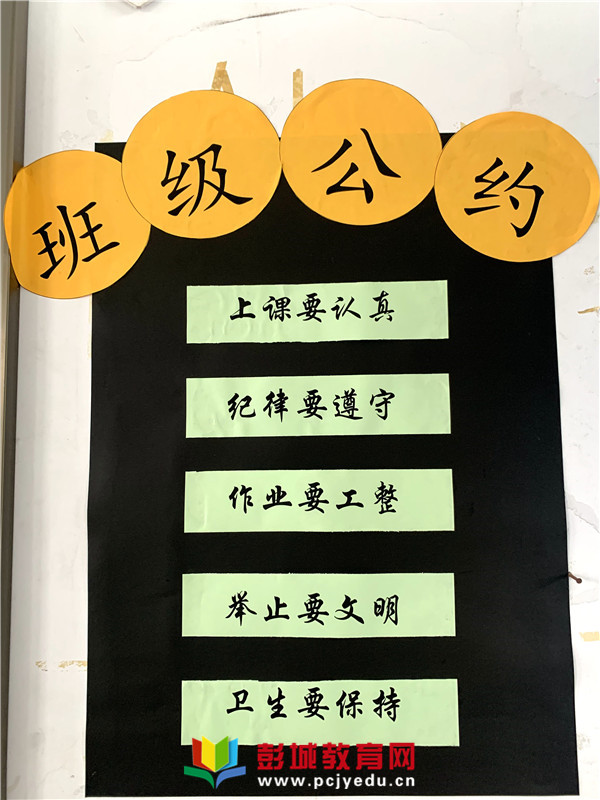 班级公约
上课要认真
纪律要遵守
作业要工整
举止要文明
卫生要保持
彭城教育网
www.pcjyedu.cn